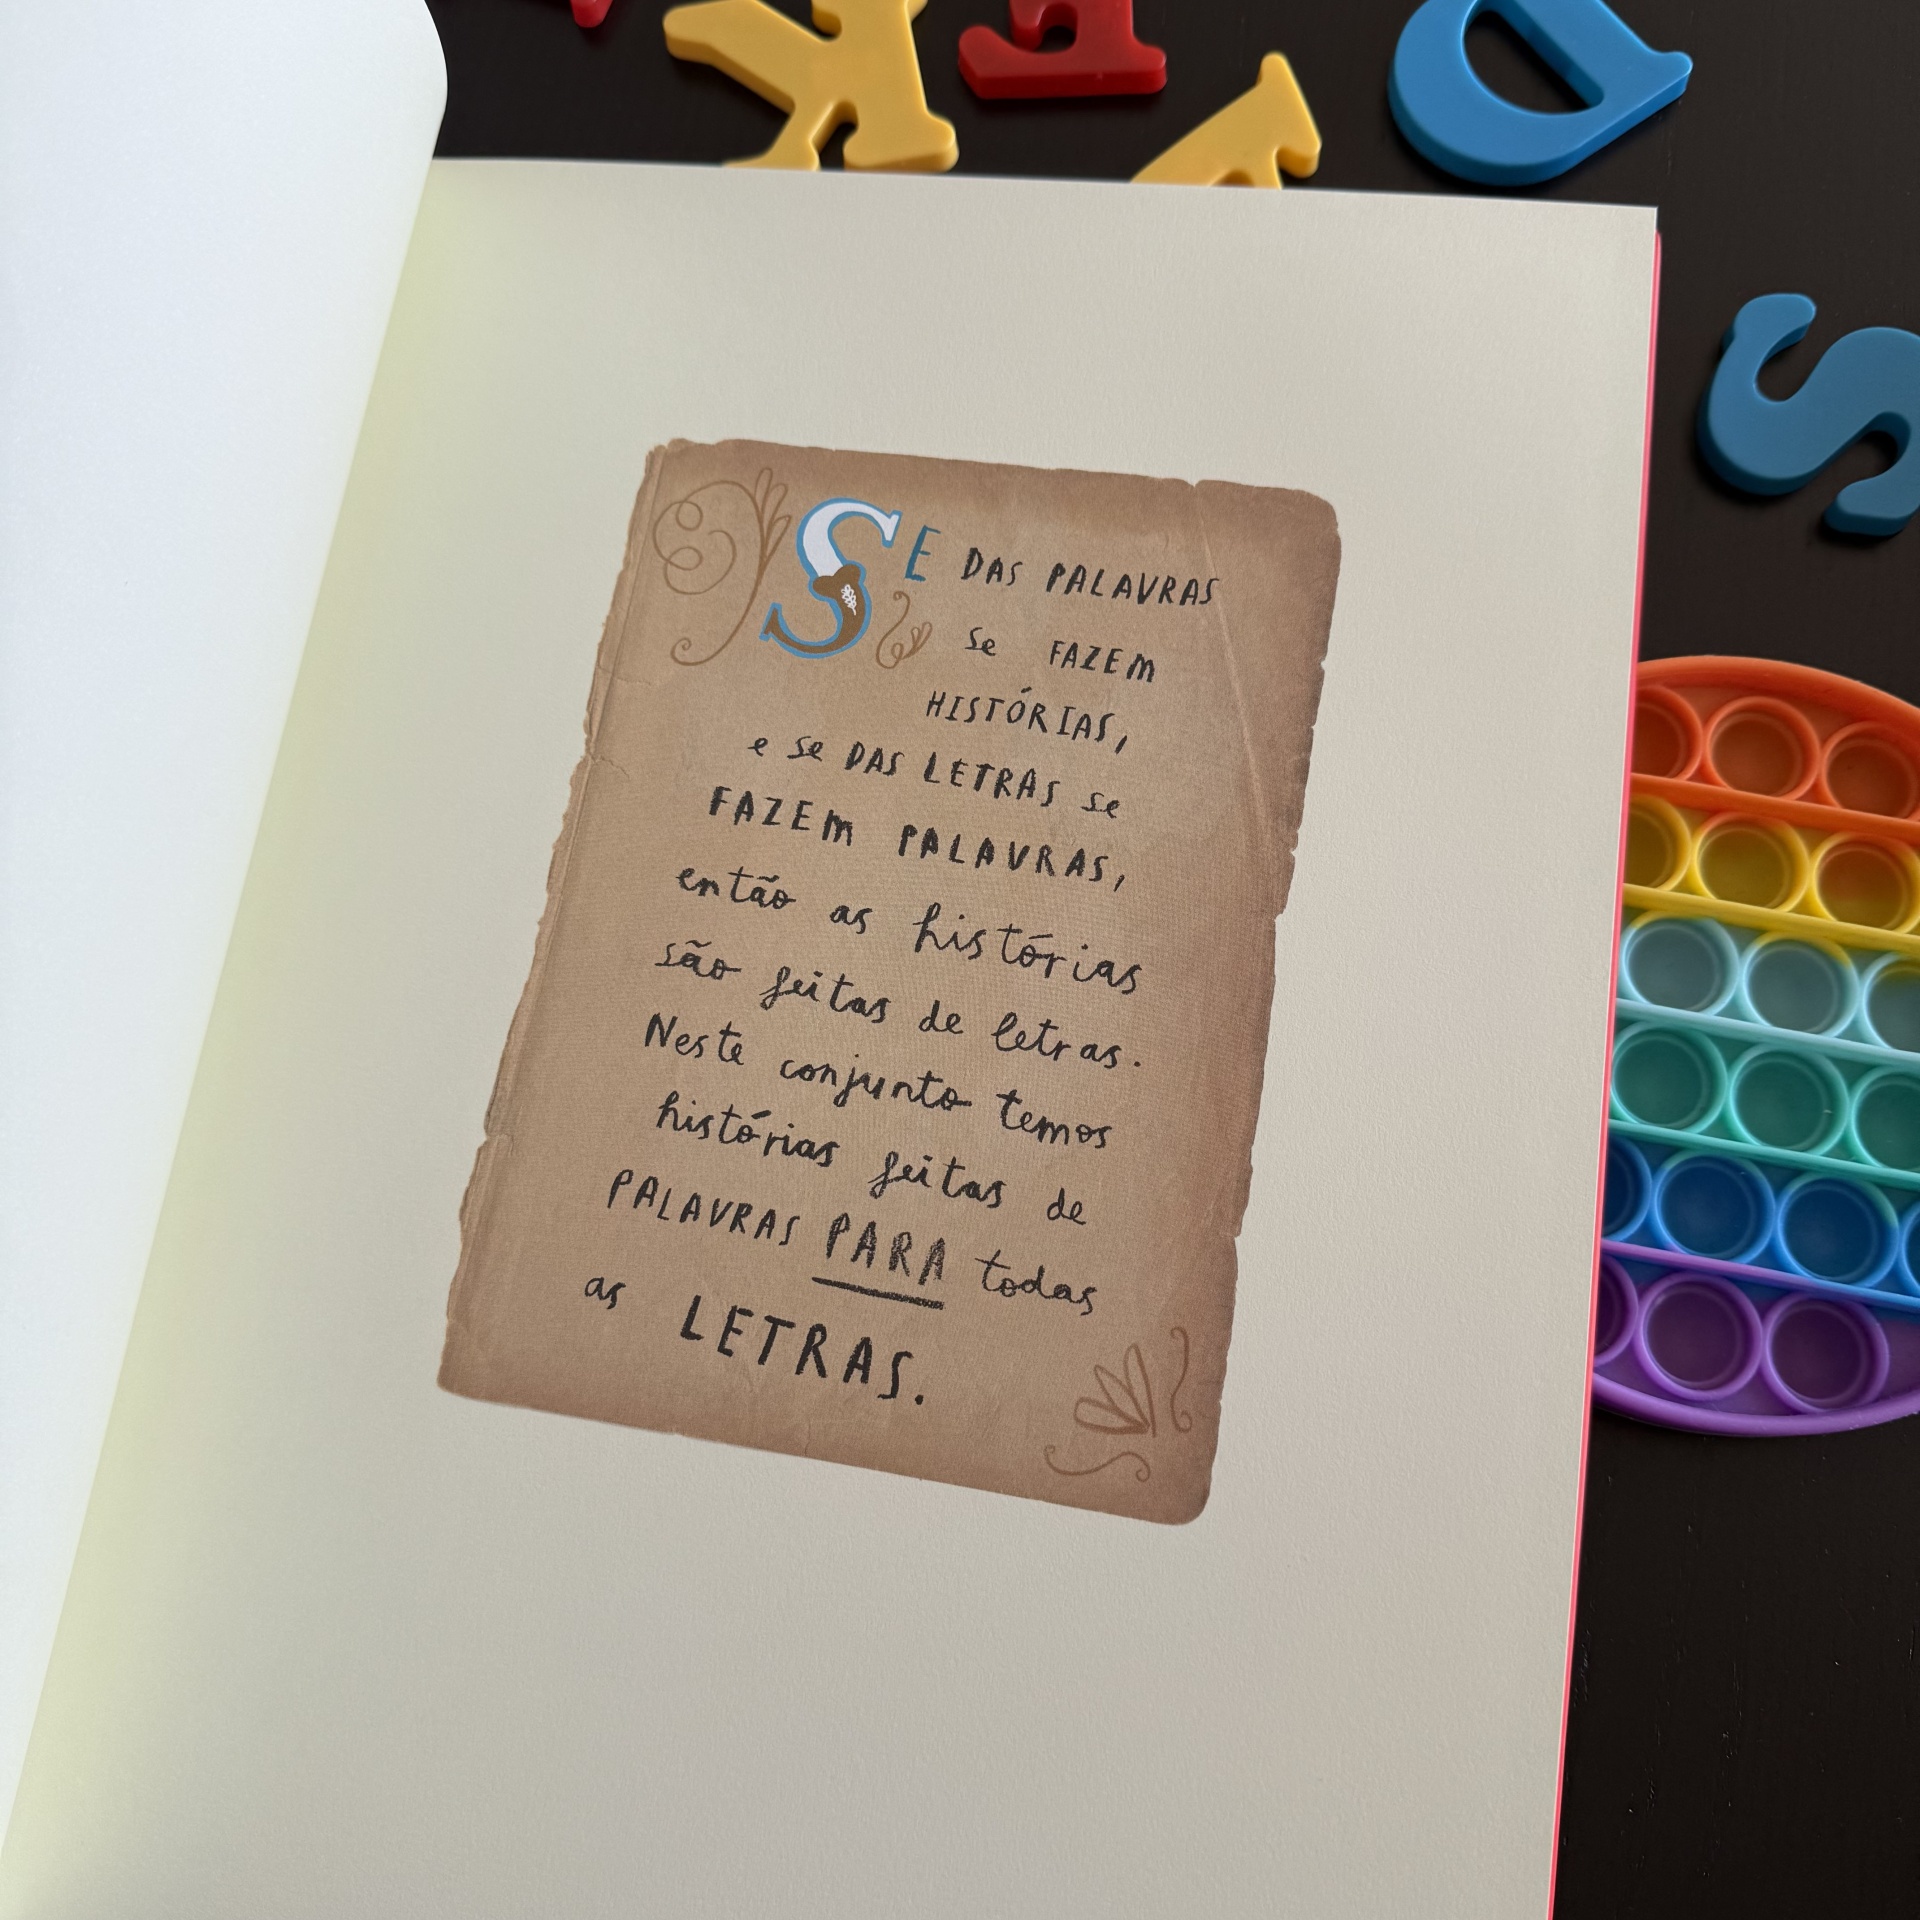 SE DAS PALAVRAS
se FAZEM
HISTÓRIAS,
e se DAS LETRAS se
FAZEM PALAVRAS,
então as histórias
são feitas de letras.
Neste conjunto temos
histórias feitas de
PALAVRAS PARA todas
as LETRAS.
D
S